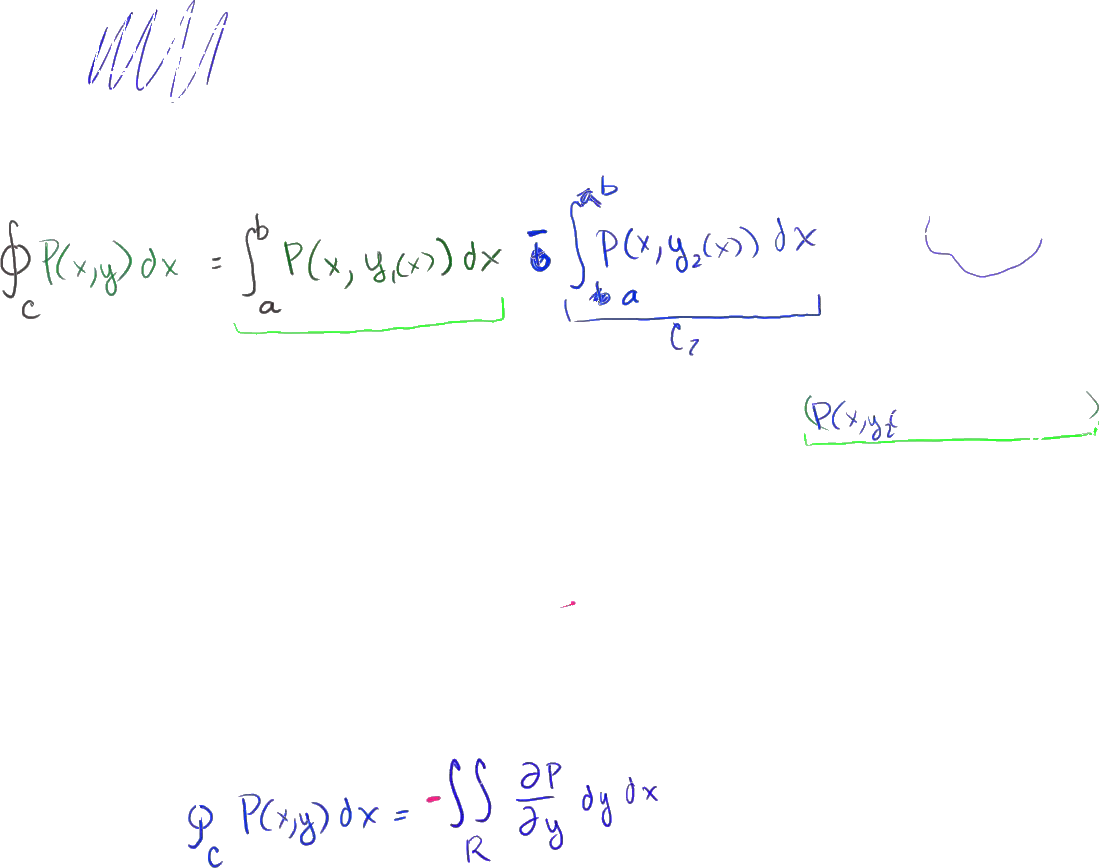 ∮_C P(x,y) dx = ∫_a^b P(x, y₁(x)) dx - ∫_a^b P(x, y₂(x)) dx
C₂
(P(x,y₂( )
∮_C P(x,y) dx = -∬_R ∂P/∂y dy dx